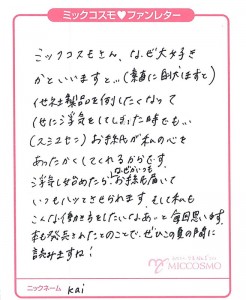 ミックコスモ♥ファンレター
ミックコスモさん、なぜ大好き
かといいますと…(素直に白状しますと)
他社製品を倒したくなって
他に浮気をしてしまった時でも…
(スミマセン) お手紙が私の心を
あったかくしてくれるからです。
なぜかいつも
浮気し始めたら、お手紙が届いて
いつもハッとさせられます。もし私も
こんな働き方をしたいなあ。と毎回思います。
本も発売されたとのことで、ぜひこの夏の間に
読みますね!
MICCOSMO
ニックネーム kai